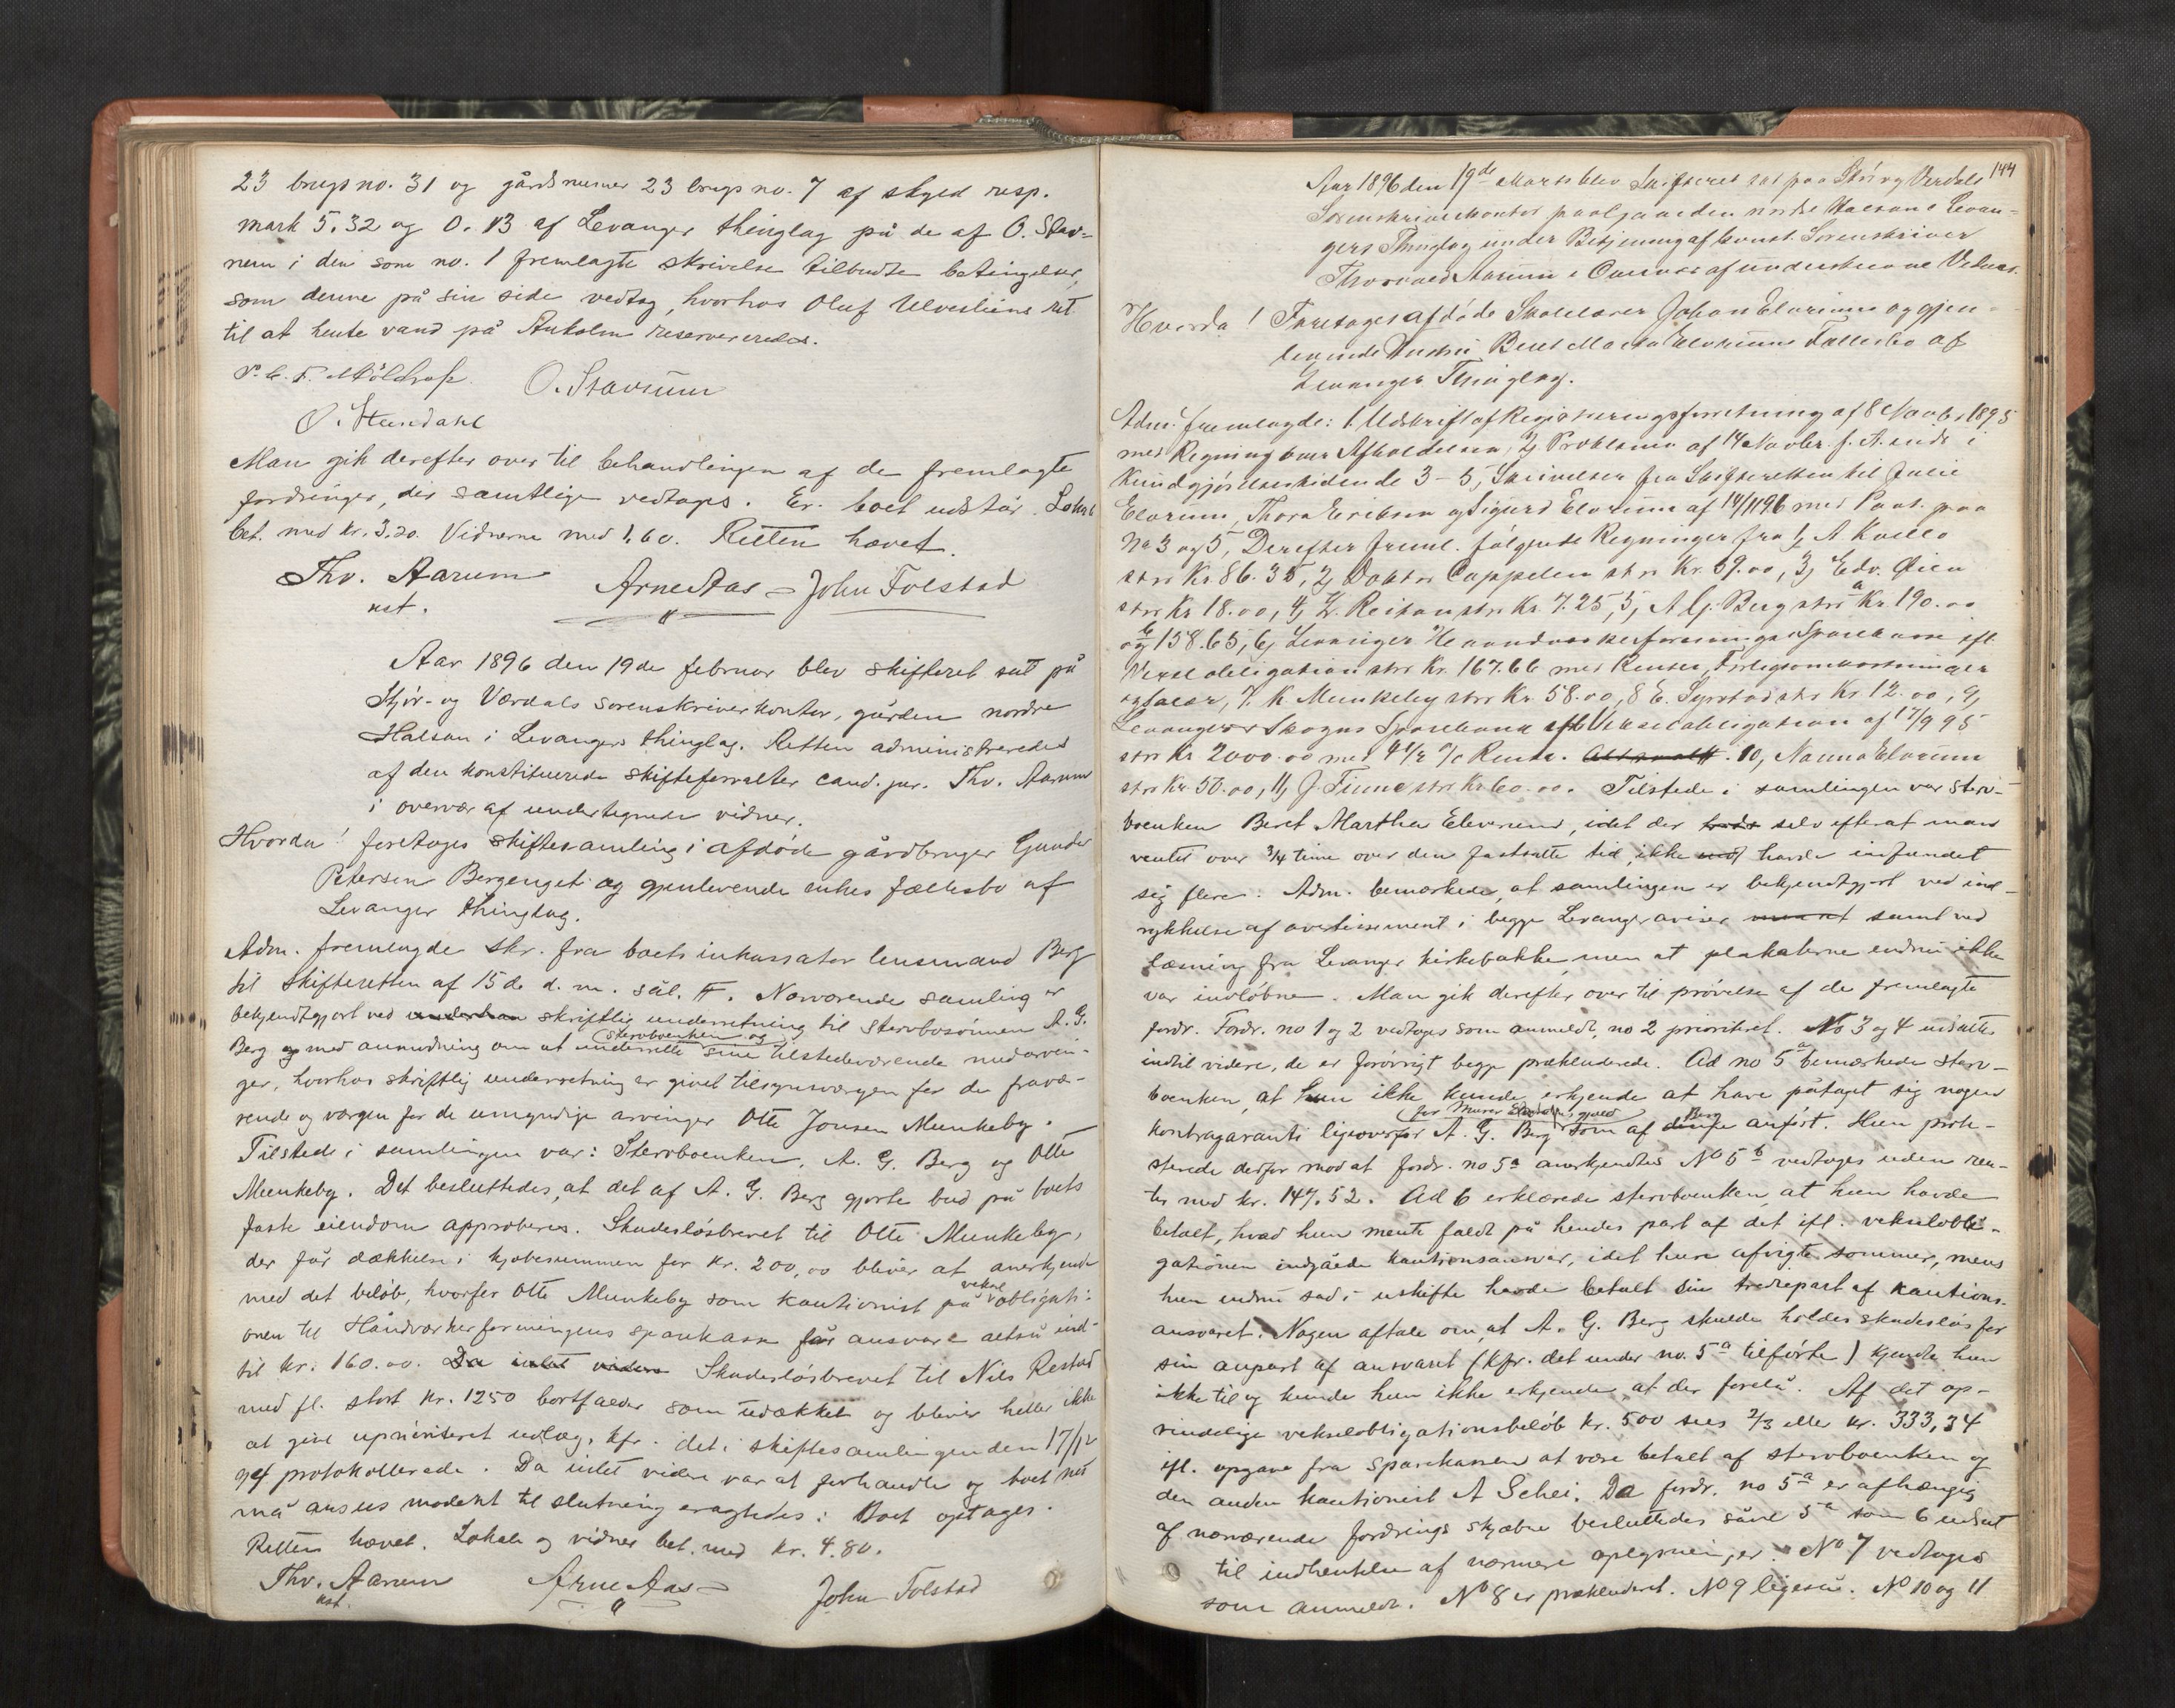 23 brugsno. 31 og gårdsnumer 23 brugsno. 7 af skyld resp.
mark 5,32 og 0.13 af Levanger thinglag på de af O. Stav-
nem i den som no. 1 fremlagte skrivelse tilbudte betingelser,
som denne på sin side vedtog, hvorhos Oluf Ulvesliens ret
til at hente vand på reserveredes.
O. Stavrum
Man gik derefter over til behandlingen af de fremlagte
fordringer, der samtlige vedtoges. Er. boet udstår. Lokal
bet. med kr. 3.20. Vidnerne med 1.60. Retten hævet.
Thv. Aarum Arne Aas = John Tolstad
kst.
Aar 1896 den 19de februar blev skifteret sat på
Stjør- og Værdals sorenskriverkontor, gården nordre
Halsan i Levangers thinglag. Retten administreredes
af den konstituerede skifteforvalter cand. jur. Thv. Aarum
i overvær af undertegnede vidner.
Hvorda! foretoges skiftesamling i afdøde gårdbruger Gunder
Petersen Bergenget og gjenlevende enkes fællesbo af
Levanger thinglag.
Adm. fremlagde skr. fra boets inkassator lensmand Berg
til skifteretten af 15de d. m. sål. #. Nærværende samling er
bekjendtgjort ved underhaan skriftlig underretning til stervbosønnen A. G.
Berg og med anmodning om at underrette stervboenken og sine tilstedeværende medarvin-
ger, hvorhos skriftlig underretning er givet tilsynsværgen for de fravæ-
rende og værgen for de umyndige arvinger Otte Jonsen Munkeby. —
Tilstede i samlingen var: Stervboenken, A. G. Berg og Otte
Munkeby. Det besluttedes, at det af A. G. Berg gjorte bud på boets
faste eiendom approberes. Skadesløsbrevet til Otte Munkeby,
der får dækkelse i kjøbesummen for kr. 200,00 bliver at anerkjende
med det beløb, hvorfor Otte Munkeby som kautionist på veksel obligati-
onen til Håndværkerforeningens sparekasse får ansvare altså ind-
til kr. 160.00. Da intet videre Skadesløsbrevet til Nils Restad
med fl. stort kr. 1250 bortfalder som udækket og bliver heller ikke
at give uprioriteret udlæg, kfr. det i skiftesamlingen den 17/12
94 protokollerede. Da intet videre var at forhandle og boet nu
må ansees modent til slutning eragtedes: Boet optages.
Retten hævet. Lokale og vidner bet. med kr. 4.80.
Thv. Aarum Arne Aas = John Tolstad
kst.
144
Aar 1896 den 19de Marts blev Skifteret sat paa Stør og Verdals
Sorenskriverkontor paa Gaarden nordre Halsan i Levan-
gers Thinglag under Betjening af const. Sorenskriver
Thorvald Aarum i Overvær af underskrevne Vidner.
Hvorda! Foretoges afdøde Skolelærer Johan Elverums og gjen-
levende Enke Beret Marta Elverums Fællesbo af
Levanger Thinglag.
Adm. fremlagde: 1. Udskrift af Registreringsforretning af 8 Novbr. 1895
med Regning over Afholdelsen, 2, Proklama af 14 Novbr. f. A. inds. i
Kundgjørelsestidende 3-5, Skrivelser fra Skifteretten til Julie
Elverum, Thora Eriksen og Sigurd Elverum af 14/1 96 med Paat. paa
No 3 og 5, Derefter freml. følgende Regninger fra 1, A Kvello
stor Kr. 86.35, 2, Doktor Cappelen stor Kr. 59.00, 3, Edv. Øien
stor Kr 18.00, 4, Z. Reitan stor Kr. 7.25, 5, A G. Berg stor a Kr. 190.00
og b 158.65, 6, Levanger Haandværkerforenings Sparekasse ifl.
Vexelobligation stor Kr. 167.66 med Renter, Forlegsomkostninger
og Salær, 7. K. Munkeby stor Kr 58.00, 8 E. stor Kr. 12.00, 9,
Levanger & Skogns Sparebank ifl. Vexelobligation af 17/9 95
stor Kr 2000.00 med 4 1/2 % Rente. 10, Nanna Elverum
stor Kr. 50.00, 11, J. Finne stor Kr 60.00. Tilstede i samlingen var sterv-
boenken Beret Martha Eleverum, idet der trods selv efterat man
ventet over 3/4 time over den fastsatte tid, ikke mød havde indfundet
sig flere. Adm. bemærkede, at samlingen er bekjendtgjort ved ind-
rykkelse af avertissement i begge Levanger aviser men at samt ved
læsning fra Levanger kirkebakke, men at plakaterne endnu ikke
var indløbne. Man gik derefter over til prøvelse af de fremlagte
fordr. Fordr. no 1 og 2 vedtoges som anmeldt, no 2 prioriteret. No 3 og 4 udsattes
indtil videre, de er forøvrigt begge prækluderede. Ad no 5 a bemærkede sterv-
boenken, at hun ikke kunde erkjende at have påtaget sig nogen
kontragaranti ligeoverfor A. G. Berg for Murer gjæld som af denne Berg anført. Hun prote-
sterede derfor mod at fordr. no 5a anerkjendtes. No 5 b vedtoges uden ren-
ter med kr. 147.52. Ad 6 erklærede stervboenken, at hun havde
betalt, hvad hun mente faldt på hendes part af det ifl. vekselobli-
gationen indgåede kautionsansvar, idet hun afvigte sommer, mens
hun endnu sad i uskifte havde betalt sin tredjepart af kautions-
ansvaret. Nogen aftale om, at A. G. Berg skulde holdes skadesløs for
sin anpart af ansvaret (kfr. det under no. 5 a tilførte) kjendte hun
ikke til og kunde hun ikke erkjende at der forelå. Af det op-
rindelige vekselobligationsbeløb kr. 500 sees 2/3 eller kr. 333,34
ifl. opgave fra sparekassen at være betalt af stervboenken og
den anden kautionist A Schei. Da fordr. no 5 a er afhængig
af nærværende fordrings skjæbne besluttedes såvel 5 a som 6 udsat
til indhentelse af nærmere oplysninger. No 7 vedtoges
som anmeldt. No 8 er prækluderet. No 9 ligeså. No 10 og 11